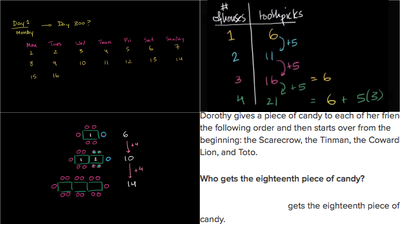 Day 1 → Day 300?
Monday
Mon Tues Wed Thurs Fri Sat Sunday
1 2 3 4 5 6 7
8 9 10 11 12 13 14
15 16
# of houses toothpicks
1 6
+5
2 11
+5
3 16 = 6
+5
4 21 = 6 + 5(3)
1 6
+4
1 2 10
+4
14
Dorothy gives a piece of candy to each of her frien
the following order and then starts over from the
beginning: the Scarecrow, the Tinman, the Coward
Lion, and Toto.
Who gets the eighteenth piece of candy?
gets the eighteenth piece of
candy.